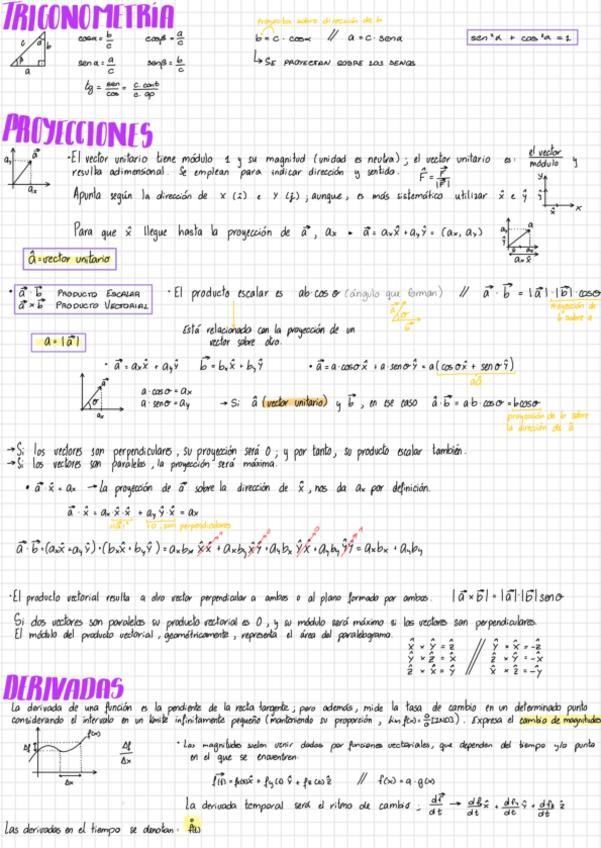 TRIGONOMETRÍA
cosα = b/c   cosβ = a/c
senα = a/c   senβ = b/c
tg = sen/cos = c. cont/c. op
Proyecta sobre dirección de b
b = c · cosα // a = c · senα
↳ SE PROYECTAN SOBRE LOS DEMÁS
sen²α + cos²α = 1
PROYECCIONES
· El vector unitario tiene módulo 1 y su magnitud (unidad es neutra); el vector unitario es: el vector/módulo y
resulta adimensional. Se emplean para indicar dirección y sentido.
Apunta según la dirección de x (î) e y (ĵ); aunque, es más sistemático utilizar x̂ e ŷ
Para que x̂ llegue hasta la proyección de a⃗, ax → a⃗ = axx̂ + ayŷ = (ax, ay)
â = vector unitario
· a⃗ · b⃗ PRODUCTO ESCALAR
a⃗ × b⃗ PRODUCTO VECTORIAL
· El producto escalar es ab·cosθ (ángulo que forman) // a⃗ · b⃗ = |a⃗|·|b⃗|·cosθ
proyección de b sobre a
Está relacionado con la proyección de un
vector sobre otro.
a = |a⃗|
· a⃗ = axx̂ + ayŷ   b⃗ = bxx̂ + byŷ   · a⃗ = a·cosθ x̂ + a·senθ ŷ = a(cosθ x̂ + senθ ŷ)
a·cosθ = ax
a·senθ = ay
→ Si â (vector unitario) y b⃗, en ese caso â·b⃗ = ab·cosθ = bcosθ
proyección de b sobre
la dirección de â
→ Si los vectores son perpendiculares, su proyección será 0; y por tanto, su producto escalar también.
→ Si los vectores son paralelos, la proyección será máxima.
· a⃗ · x̂ = ax → La proyección de a⃗ sobre la dirección de x̂, nos da ax por definición.
a⃗ · x̂ = ax x̂·x̂ + ay ŷ·x̂ = ax
0, son perpendiculares
a⃗ · b⃗ = (axx̂ + ayŷ)·(bxx̂ + byŷ) = axbx x̂x̂ + axby x̂ŷ + aybx ŷx̂ + ayby ŷŷ = axbx + ayby
· El producto vectorial resulta a otro vector perpendicular a ambos o al plano formado por ambos. |a⃗×b⃗| = |a⃗|·|b⃗|senθ
Si dos vectores son paralelos su producto vectorial es 0, y su módulo será máximo si los vectores son perpendiculares.
El módulo del producto vectorial, geométricamente, representa el área del paralelogramo.
x̂ × ŷ = ẑ // ŷ × x̂ = -ẑ
ŷ × ẑ = x̂ // ẑ × ŷ = -x̂
ẑ × x̂ = ŷ // x̂ × ẑ = -ŷ
DERIVADAS
La derivada de una función es la pendiente de la recta tangente; pero además, mide la tasa de cambio en un determinado punto
considerando el intervalo en un límite infinitamente pequeño (manteniendo su proporción, Expresa el cambio de magnitudes
Δf   f(x)   Δf/Δx
Δx
· Las magnitudes suelen venir dadas por funciones vectoriales, que dependen del tiempo y/o punto
en el que se encuentren.
// f(x) = a·g(x)
La derivada temporal será el ritmo de cambio: df⃗/dt → dfx/dt x̂ + dfy/dt ŷ + dfz/dt ẑ
Las derivadas en el tiempo se denotan: